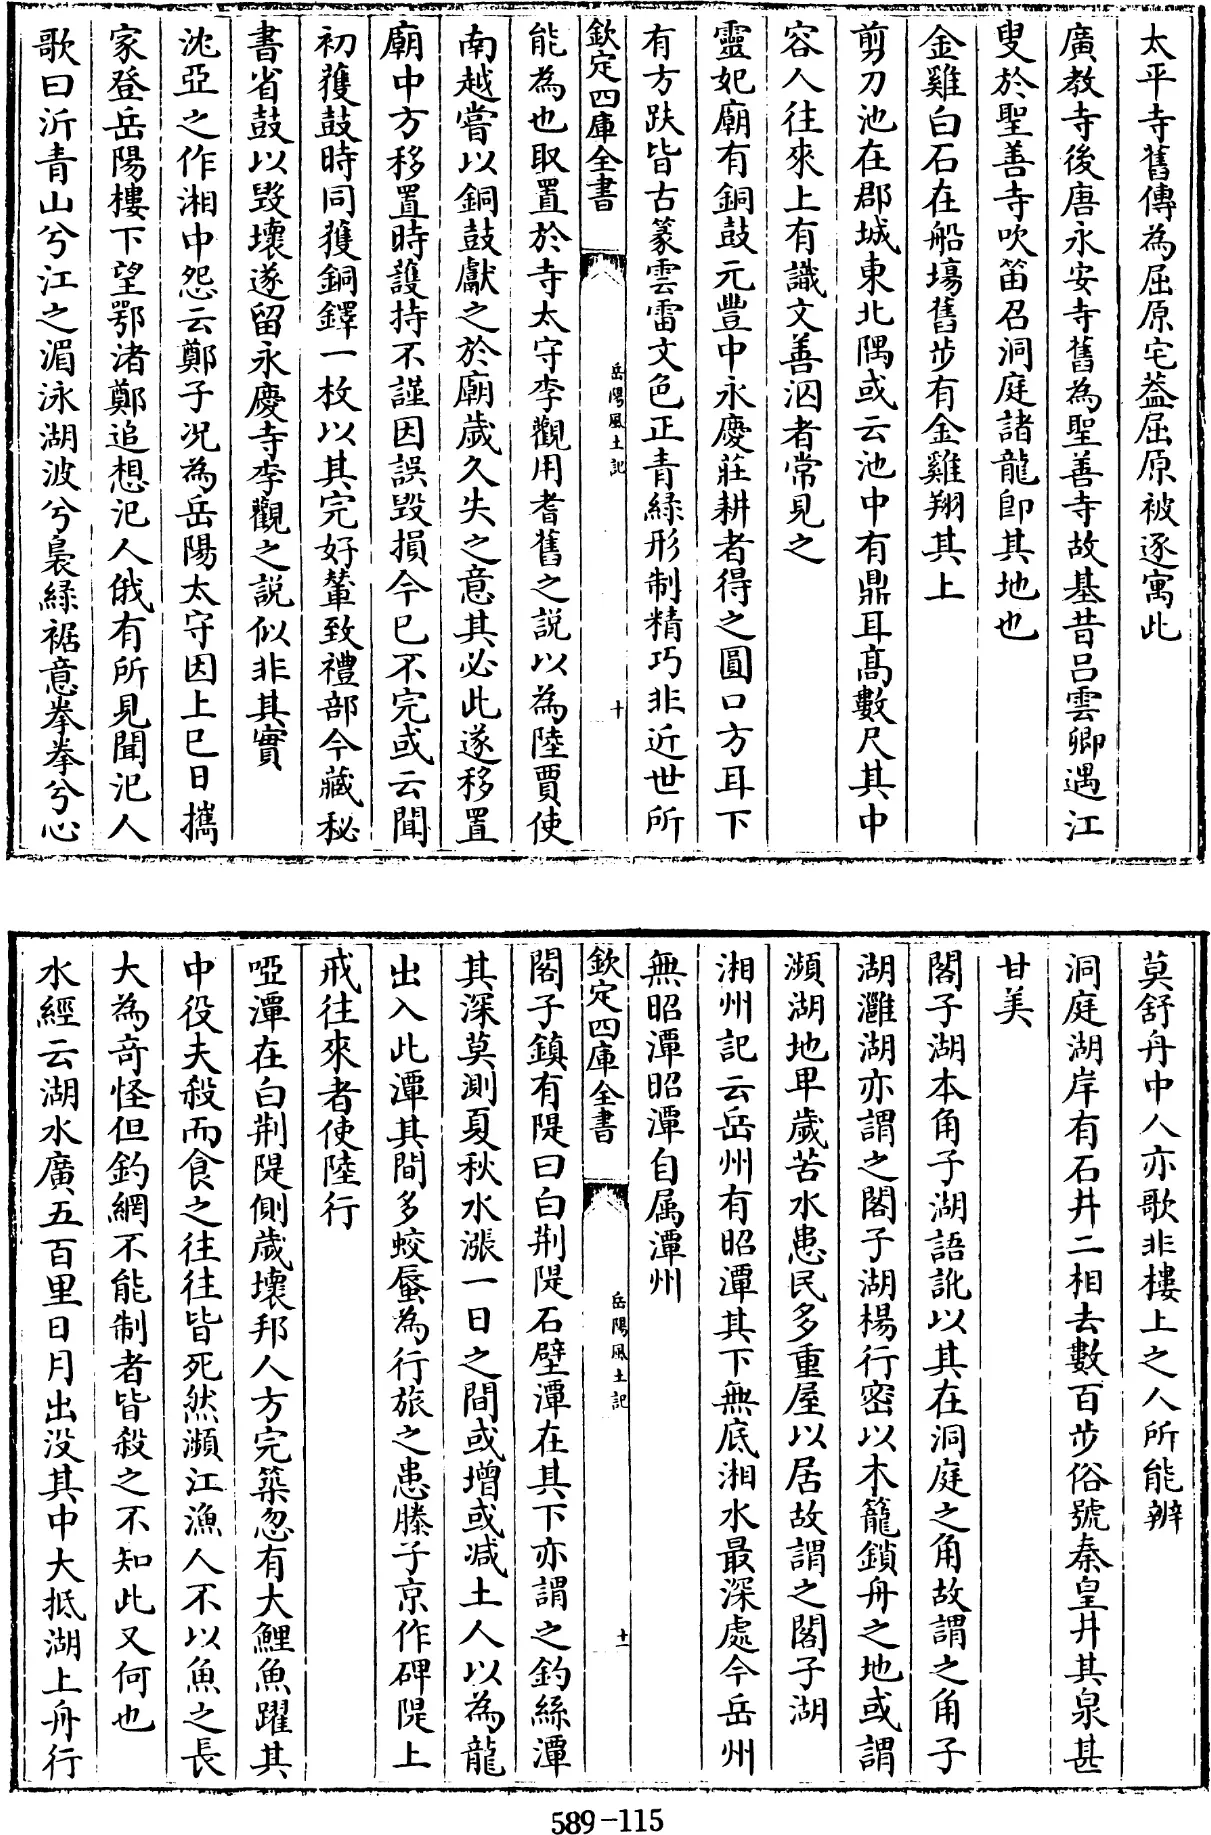 太平寺舊傳為屈原宅葢屈原被逐寓此
廣教寺後唐永安寺舊為聖善寺故基昔呂雲卿遇江
叟於聖善寺吹笛召洞庭諸龍即其地也
金雞白石在船塲舊步有金雞翔其上
剪刀池在郡城東北隅或云池中有鼎耳髙數尺其中
容人往來上有識文善泅者常見之
靈妃廟有銅鼓元豐中永慶莊耕者得之圓口方耳下
有方趺皆古篆雲雷文色正青綠形制精巧非近世所
欽定四庫全書
岳陽風土記
十
能為也取置於寺太守李觀用耆舊之説以為陸賈使
南越嘗以銅鼓獻之於廟歲久失之意其必此遂移置
廟中方移置時護持不謹因誤毀損今已不完或云聞
初獲鼓時同獲銅鐸一枚以其完好輦致禮部今藏秘
書省鼓以毀壞遂留永慶寺李觀之説似非其實
沈亞之作湘中怨云鄭子况為岳陽太守因上巳日攜
家登岳陽樓下望鄂渚鄭追想汜人俄有所見聞汜人
歌曰沂青山兮江之湄泳湖波兮裊綠裾意拳拳兮心
莫舒舟中人亦歌非樓上之人所能辨
洞庭湖岸有石井二相去數百步俗號秦皇井其泉甚
甘美
閣子湖本角子湖語訛以其在洞庭之角故謂之角子
湖灉湖亦謂之閣子湖楊行密以木籠鎖舟之地或謂
瀕湖地卑歲苦水患民多重屋以居故謂之閣子湖
湘州記云岳州有昭潭其下無底湘水最深處今岳州
無昭潭昭潭自属潭州
欽定四庫全書
岳陽風土記
十一
閣子鎮有隄曰白荆隄石壁潭在其下亦謂之釣絲潭
其深莫測夏秋水漲一日之間或增或减土人以為龍
出入此潭其間多蛟蜃為行旅之患滕子京作碑隄上
戒往來者使陸行
啞潭在白荆隄側歲壞邦人方完築忽有大鯉魚躍其
中役夫殺而食之往往皆死然瀕江漁人不以魚之長
大為竒怪但釣網不能制者皆殺之不知此又何也
水經云湖水廣五百里日月出没其中大抵湖上舟行
589-115